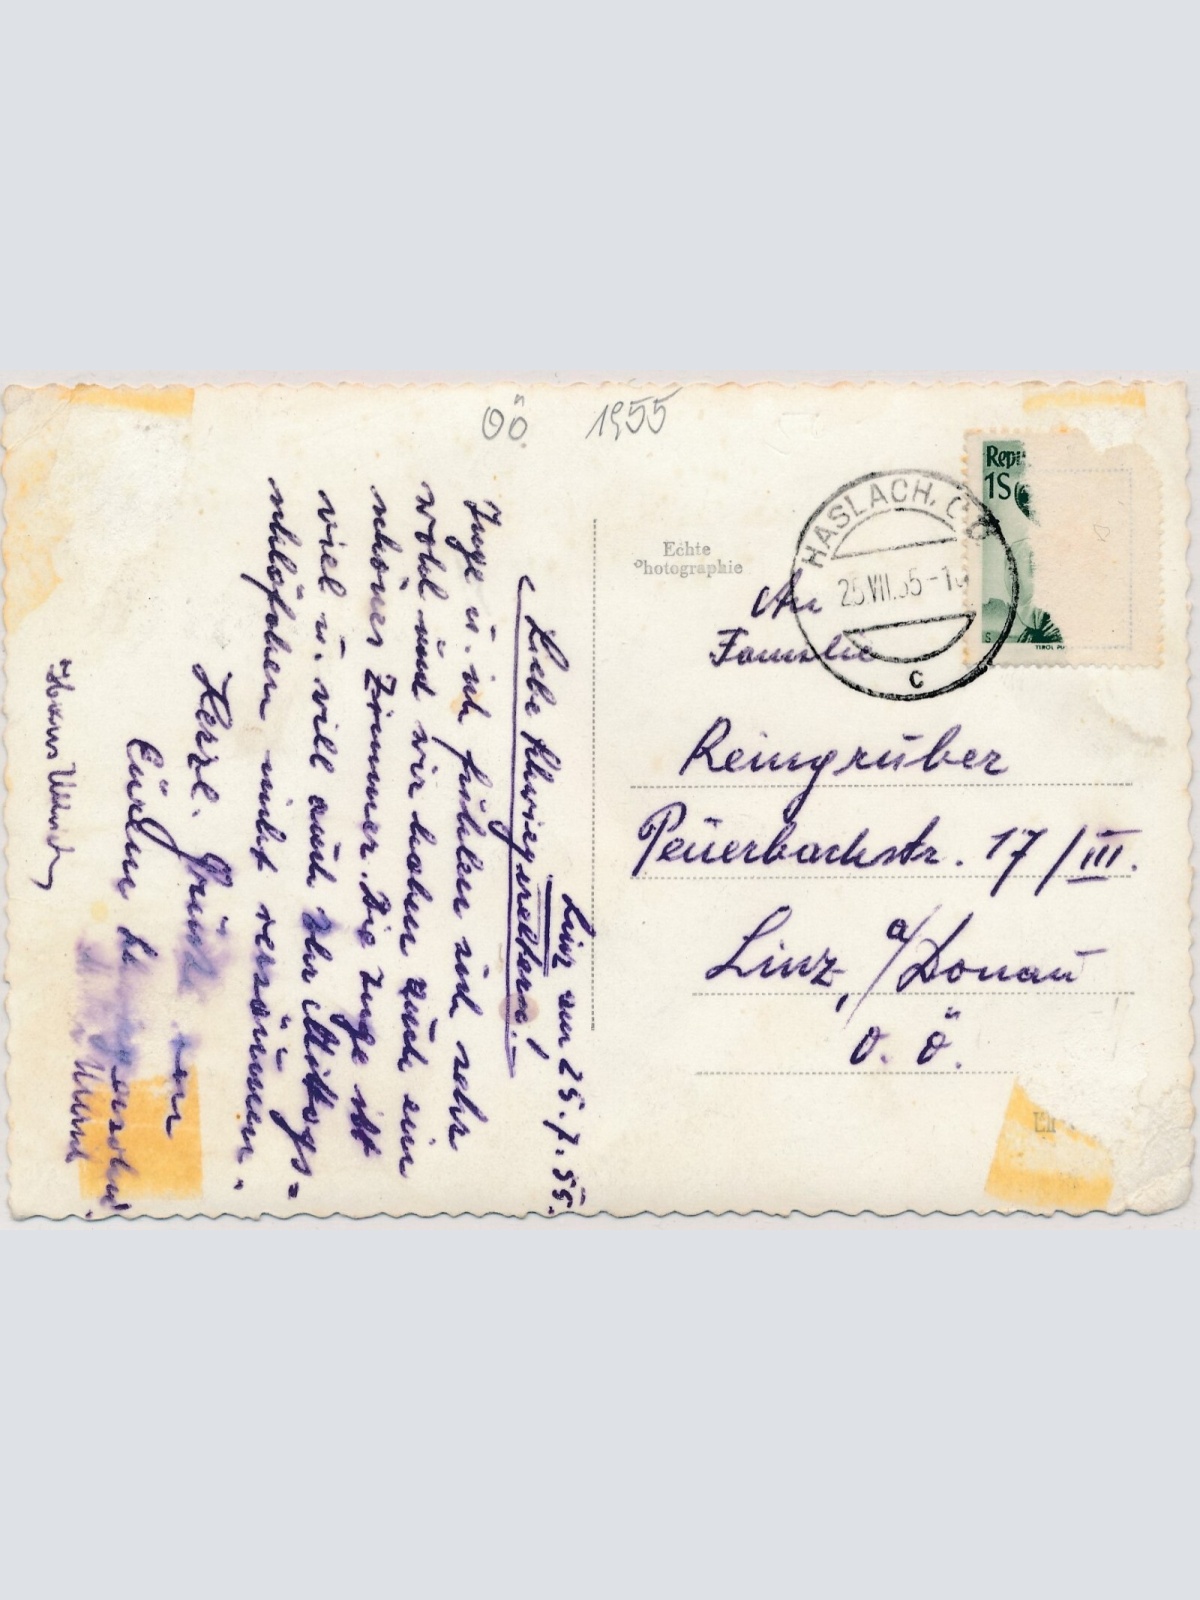 OÖ 1955
Linz am 25.7.55.
Liebe Schwiegereltern!
Inge u. ich fühlen sich sehr
wohl und wir haben auch ein
schönes Zimmer. Die Inge ißt
viel u. will auch ihr Mittags=
schläfchen nicht versäumen.
Herzl. Grüße von
Euren
Hans
Echte
Photographie
HASLACH, OÖ
25.VII.55-1
c
Rep
1S
S
TIROL
An
Familie
Reingruber
Peuerbachstr. 17/III.
Linz, a/Donau
O. Ö.